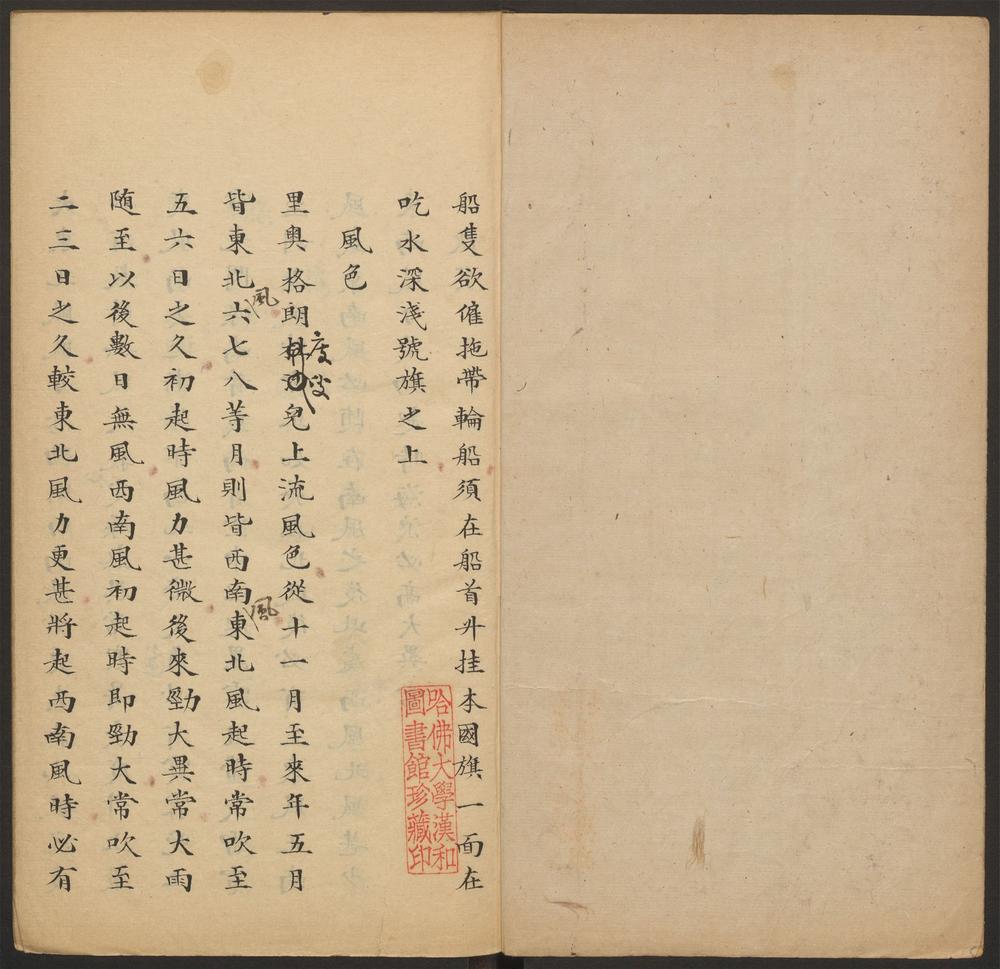 船隻欲僱拖帶輪船須在船首升挂本國旗一面在
吃水深淺號旗之上
風色
里奧格朗度叟兒上流風色從十一月至來年五月
皆東北風六七八等月則皆西南風東北風起時常吹至
五六日之久初起時風力甚微後來勁大異常大雨
随至以後數日無風西南風初起時即勁大常吹至
二三日之久較東北風力更甚將起西南風時必有
哈佛大學漢和
圖書館珍藏印